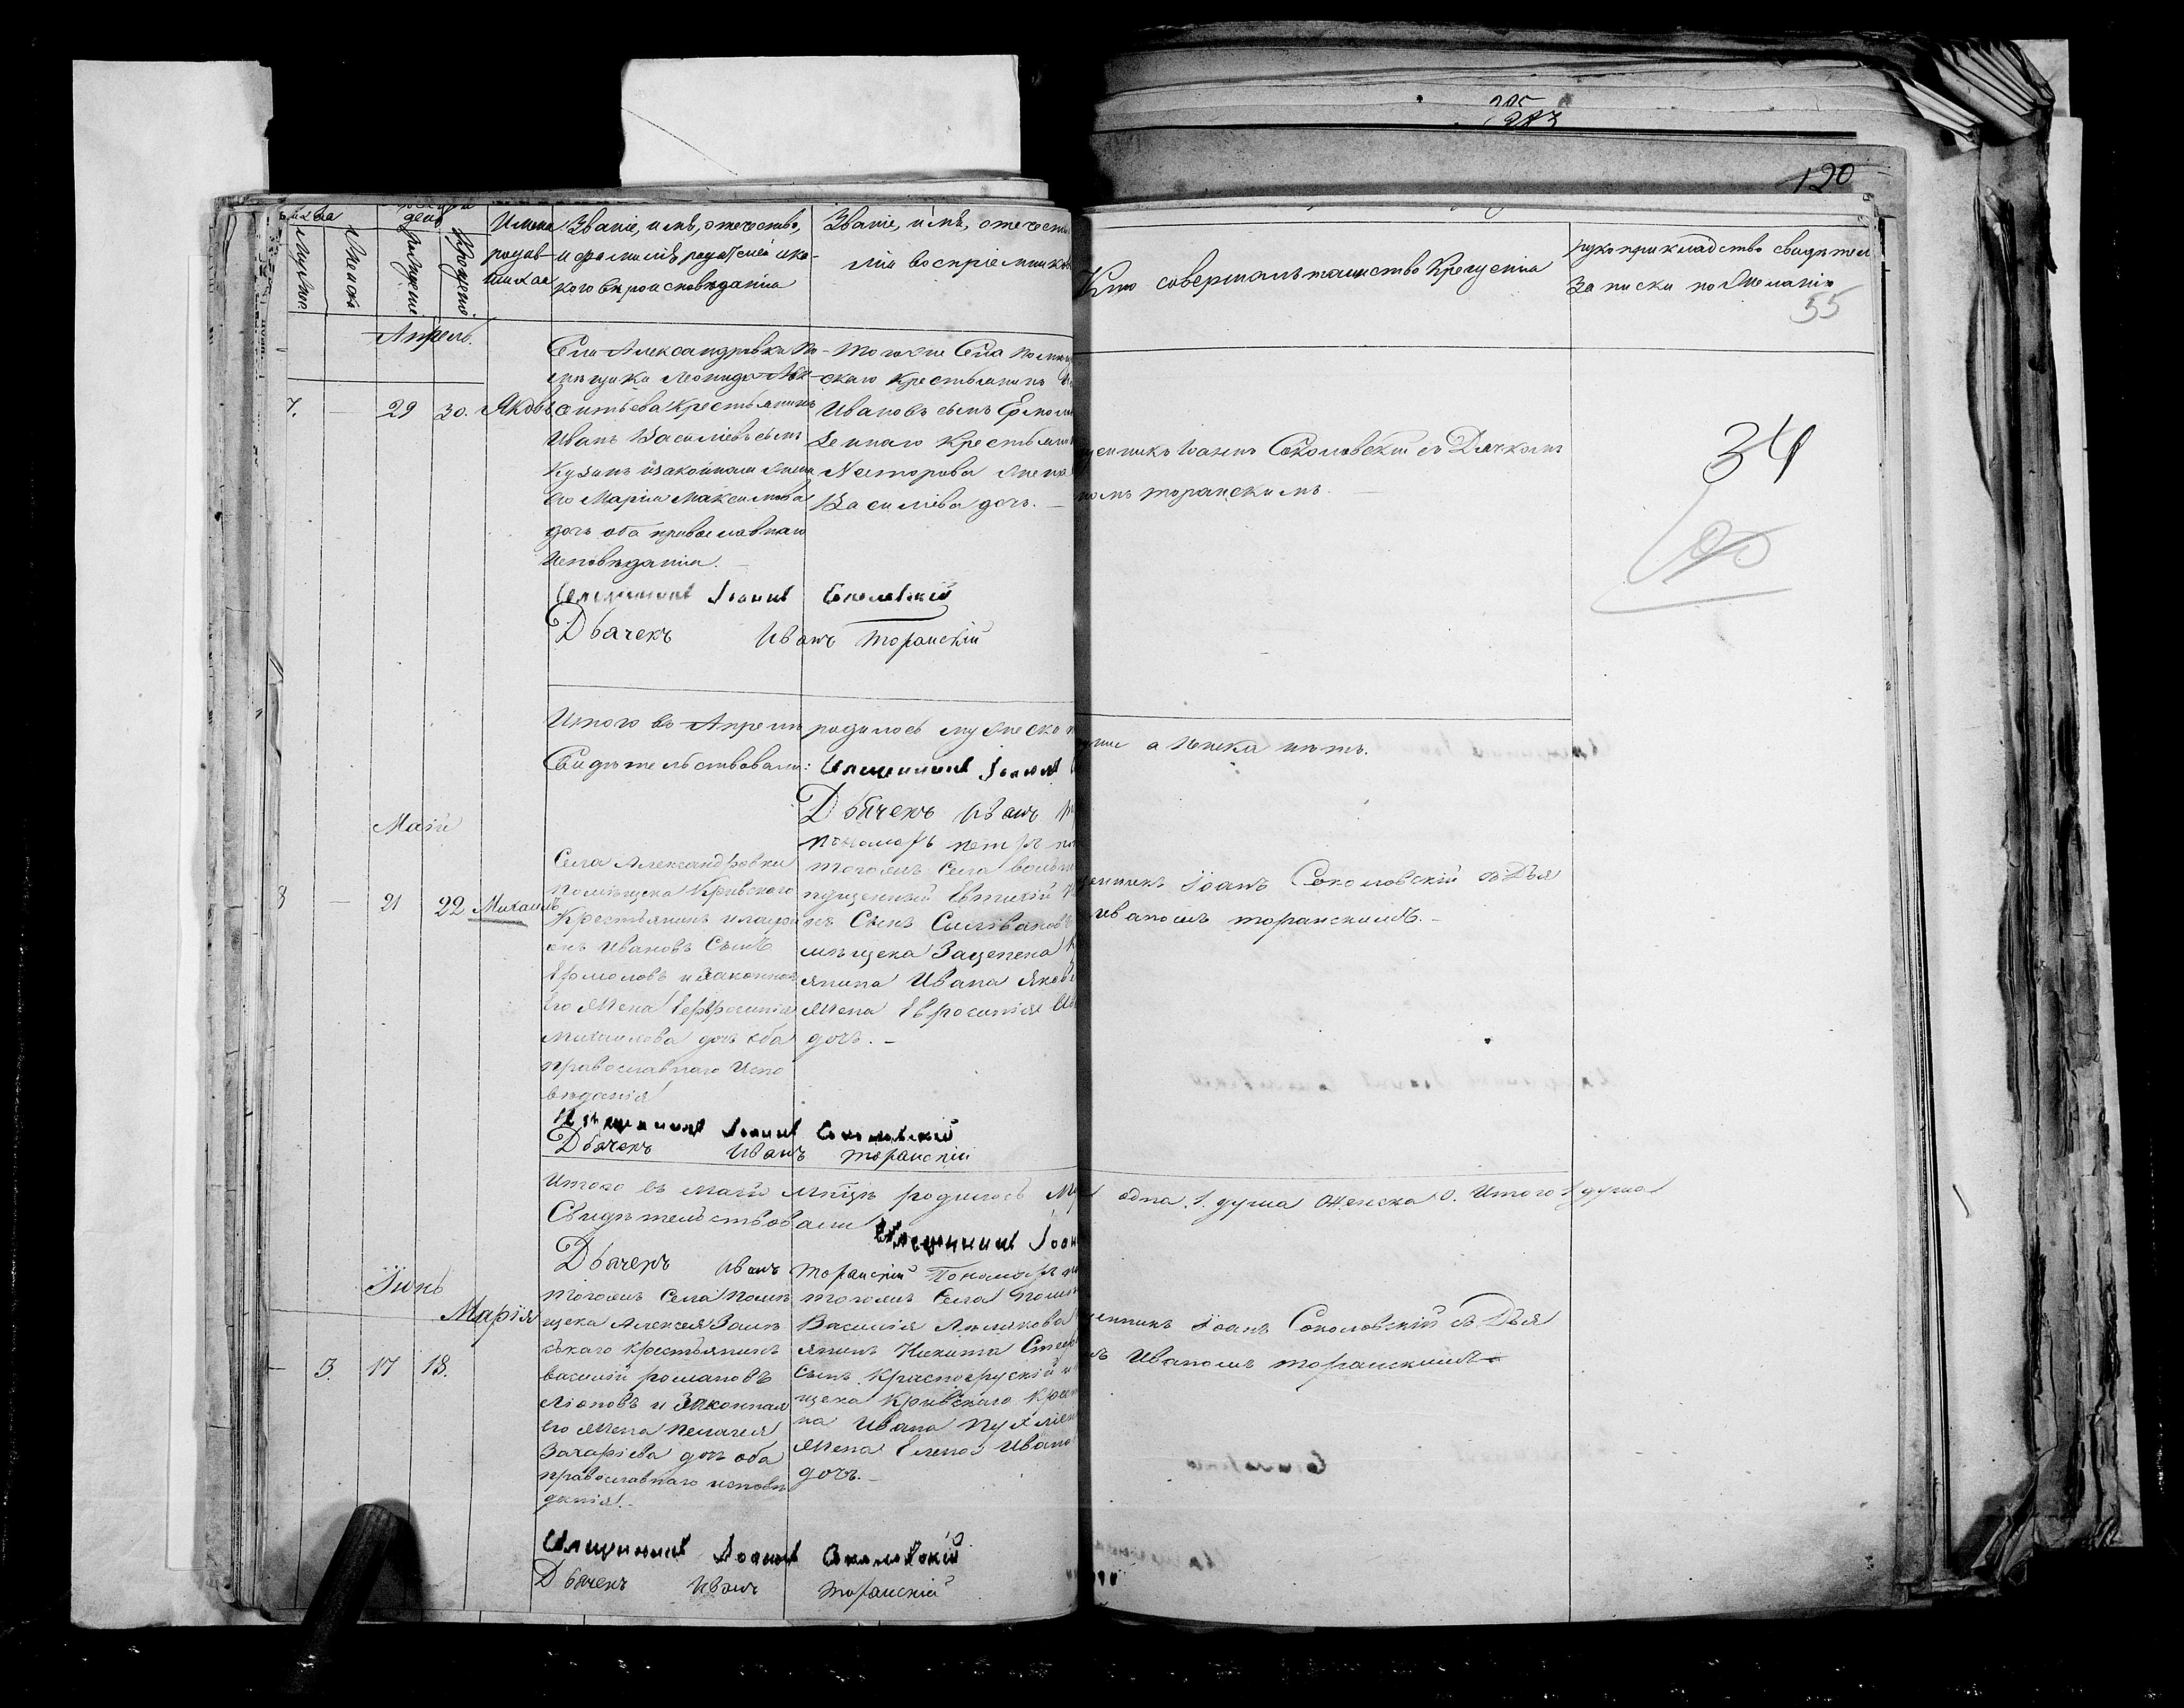 120
Имена Званіе, имѣ, отечество,
родив- и фамилія родителей и ка-
шихся кого вѣроисповѣданія
Званіе, имѣ, отечеств
лія воспріемников
Кто совершалъ таинство Крещенія
рукоприкладство свидѣтел
записки по желанію
35
Мужеск
Женск
Рожденіе
Крещенія
Апрель.
7. — 29 30. Яковъ
Села Александровки По-
мѣщика Леонида
Крестьянинъ
Иванъ Василіевъ сынъ
Кузинъ и законная жена
его Марія Максимова
дочь оба православнаго
Исповѣданія. —
Тогоже Села помѣщ
скаго Крестьянинъ
Ивановъ сынъ Ермол
Крестьянин
Несторова жена
Василіева дочь. —
щенникъ Іоаннъ Соколовскій съ Дячкомъ
номъ торанскимъ. —
34
Священникъ Іоаннъ Соколовскій
Дьячекъ Иванъ торанскій
Итого въ Апрелѣ родилось мужеско
души а женска нѣтъ.
Свидѣтельствовали: Священникъ Іоаннъ
Дьячекъ Иванъ
пономарь петръ
Маій
8 — 21 22 Михаилъ
Села Александровки
помѣщика Кривского
Крестьянинъ илари
онъ Ивановъ Сынъ
Ермоловъ и Законная
Его Жена Ефросинія
Михаилова дочь оба
православнаго Испо
вѣданія
тогожъ Села вольно
пущенный Евтихій
нъ Сынъ Силивановъ
мѣщека Зацепена
янина Ивана Яковл
Жена Евросинія Ив
дочь. —
щенникъ Іоанъ Соколовскій съ Дья
Иваномъ торанскимъ. —
Священникъ Іоаннъ Соколовскій
Дьячекъ Иванъ торанскій
Итого въ маіи мѣсцѣ родилось Му
одна .1. душа Женска .0. Итого 1 душа
Свидѣтельствовали
Священникъ Іоан
Дьячекъ Иванъ торанскій Пономарь
Іюнь
— 3. 17 18. Марія
тогожъ Села помѣ
щека Алексея Зам
ського Крестьянинъ
василій романовъ
Ліоновъ и Законная
Его Жена пелагея
Захаріева дочь оба
православнаго исповѣ
данія. —
тогожъ Села помѣ
Василія
янинъ Никита Стеф
Сынъ
щека Кривского Крест
на Ивана
Жена Елена Ивано
дочь. —
щенникъ Іоанъ Соколовскій съ Дья
Иваномъ торанскимъ
Священникъ Іоаннъ Соколовскій
Дьячекъ Иванъ торанскій